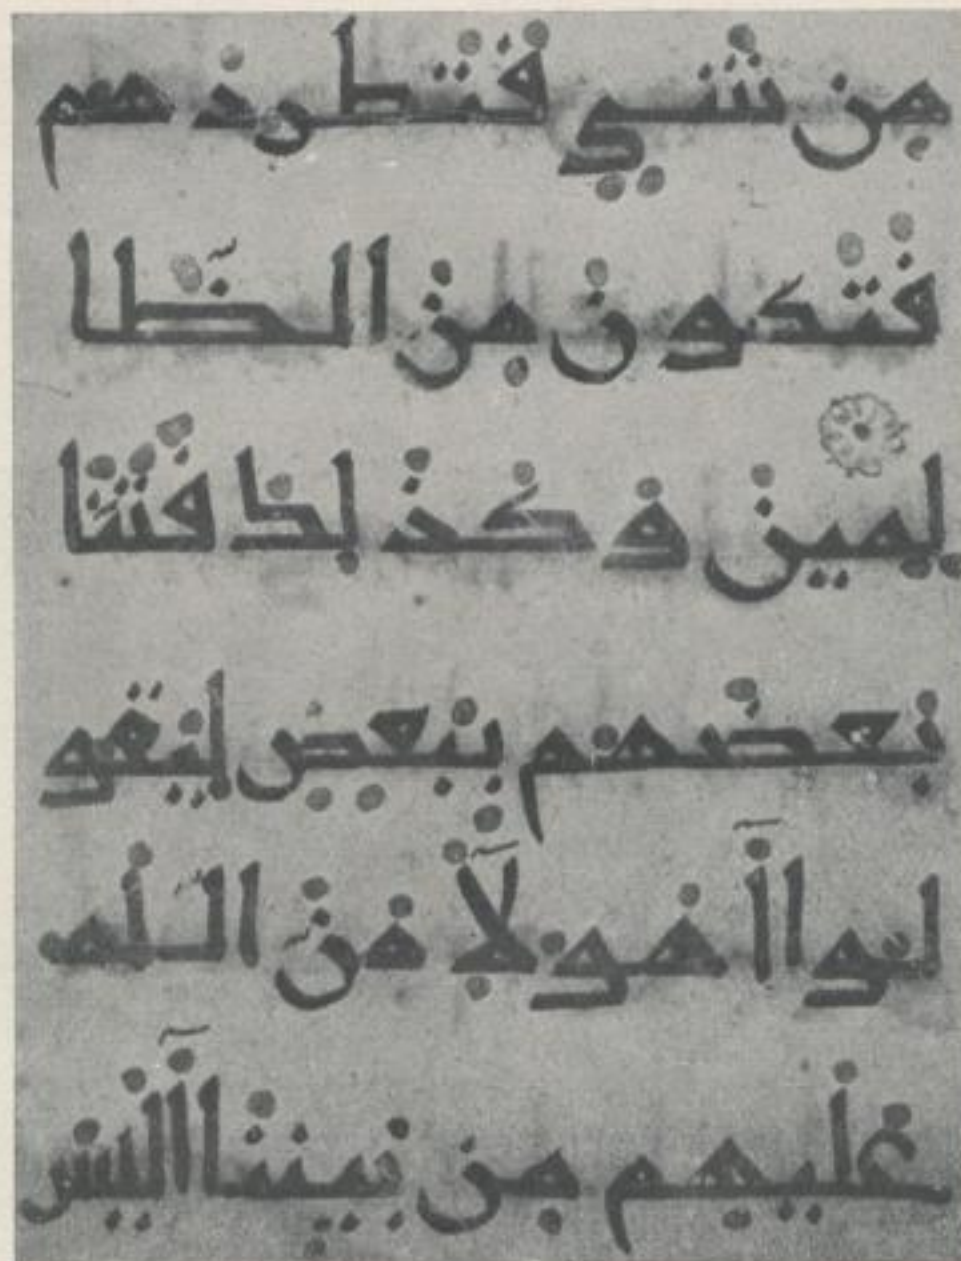 من شي فتطردهم
فتكون من الظا
لمين وكذلك فتنا
بعضهم ببعض ليقو
لوا أهؤلا من الله
عليهم من بيننا أليس